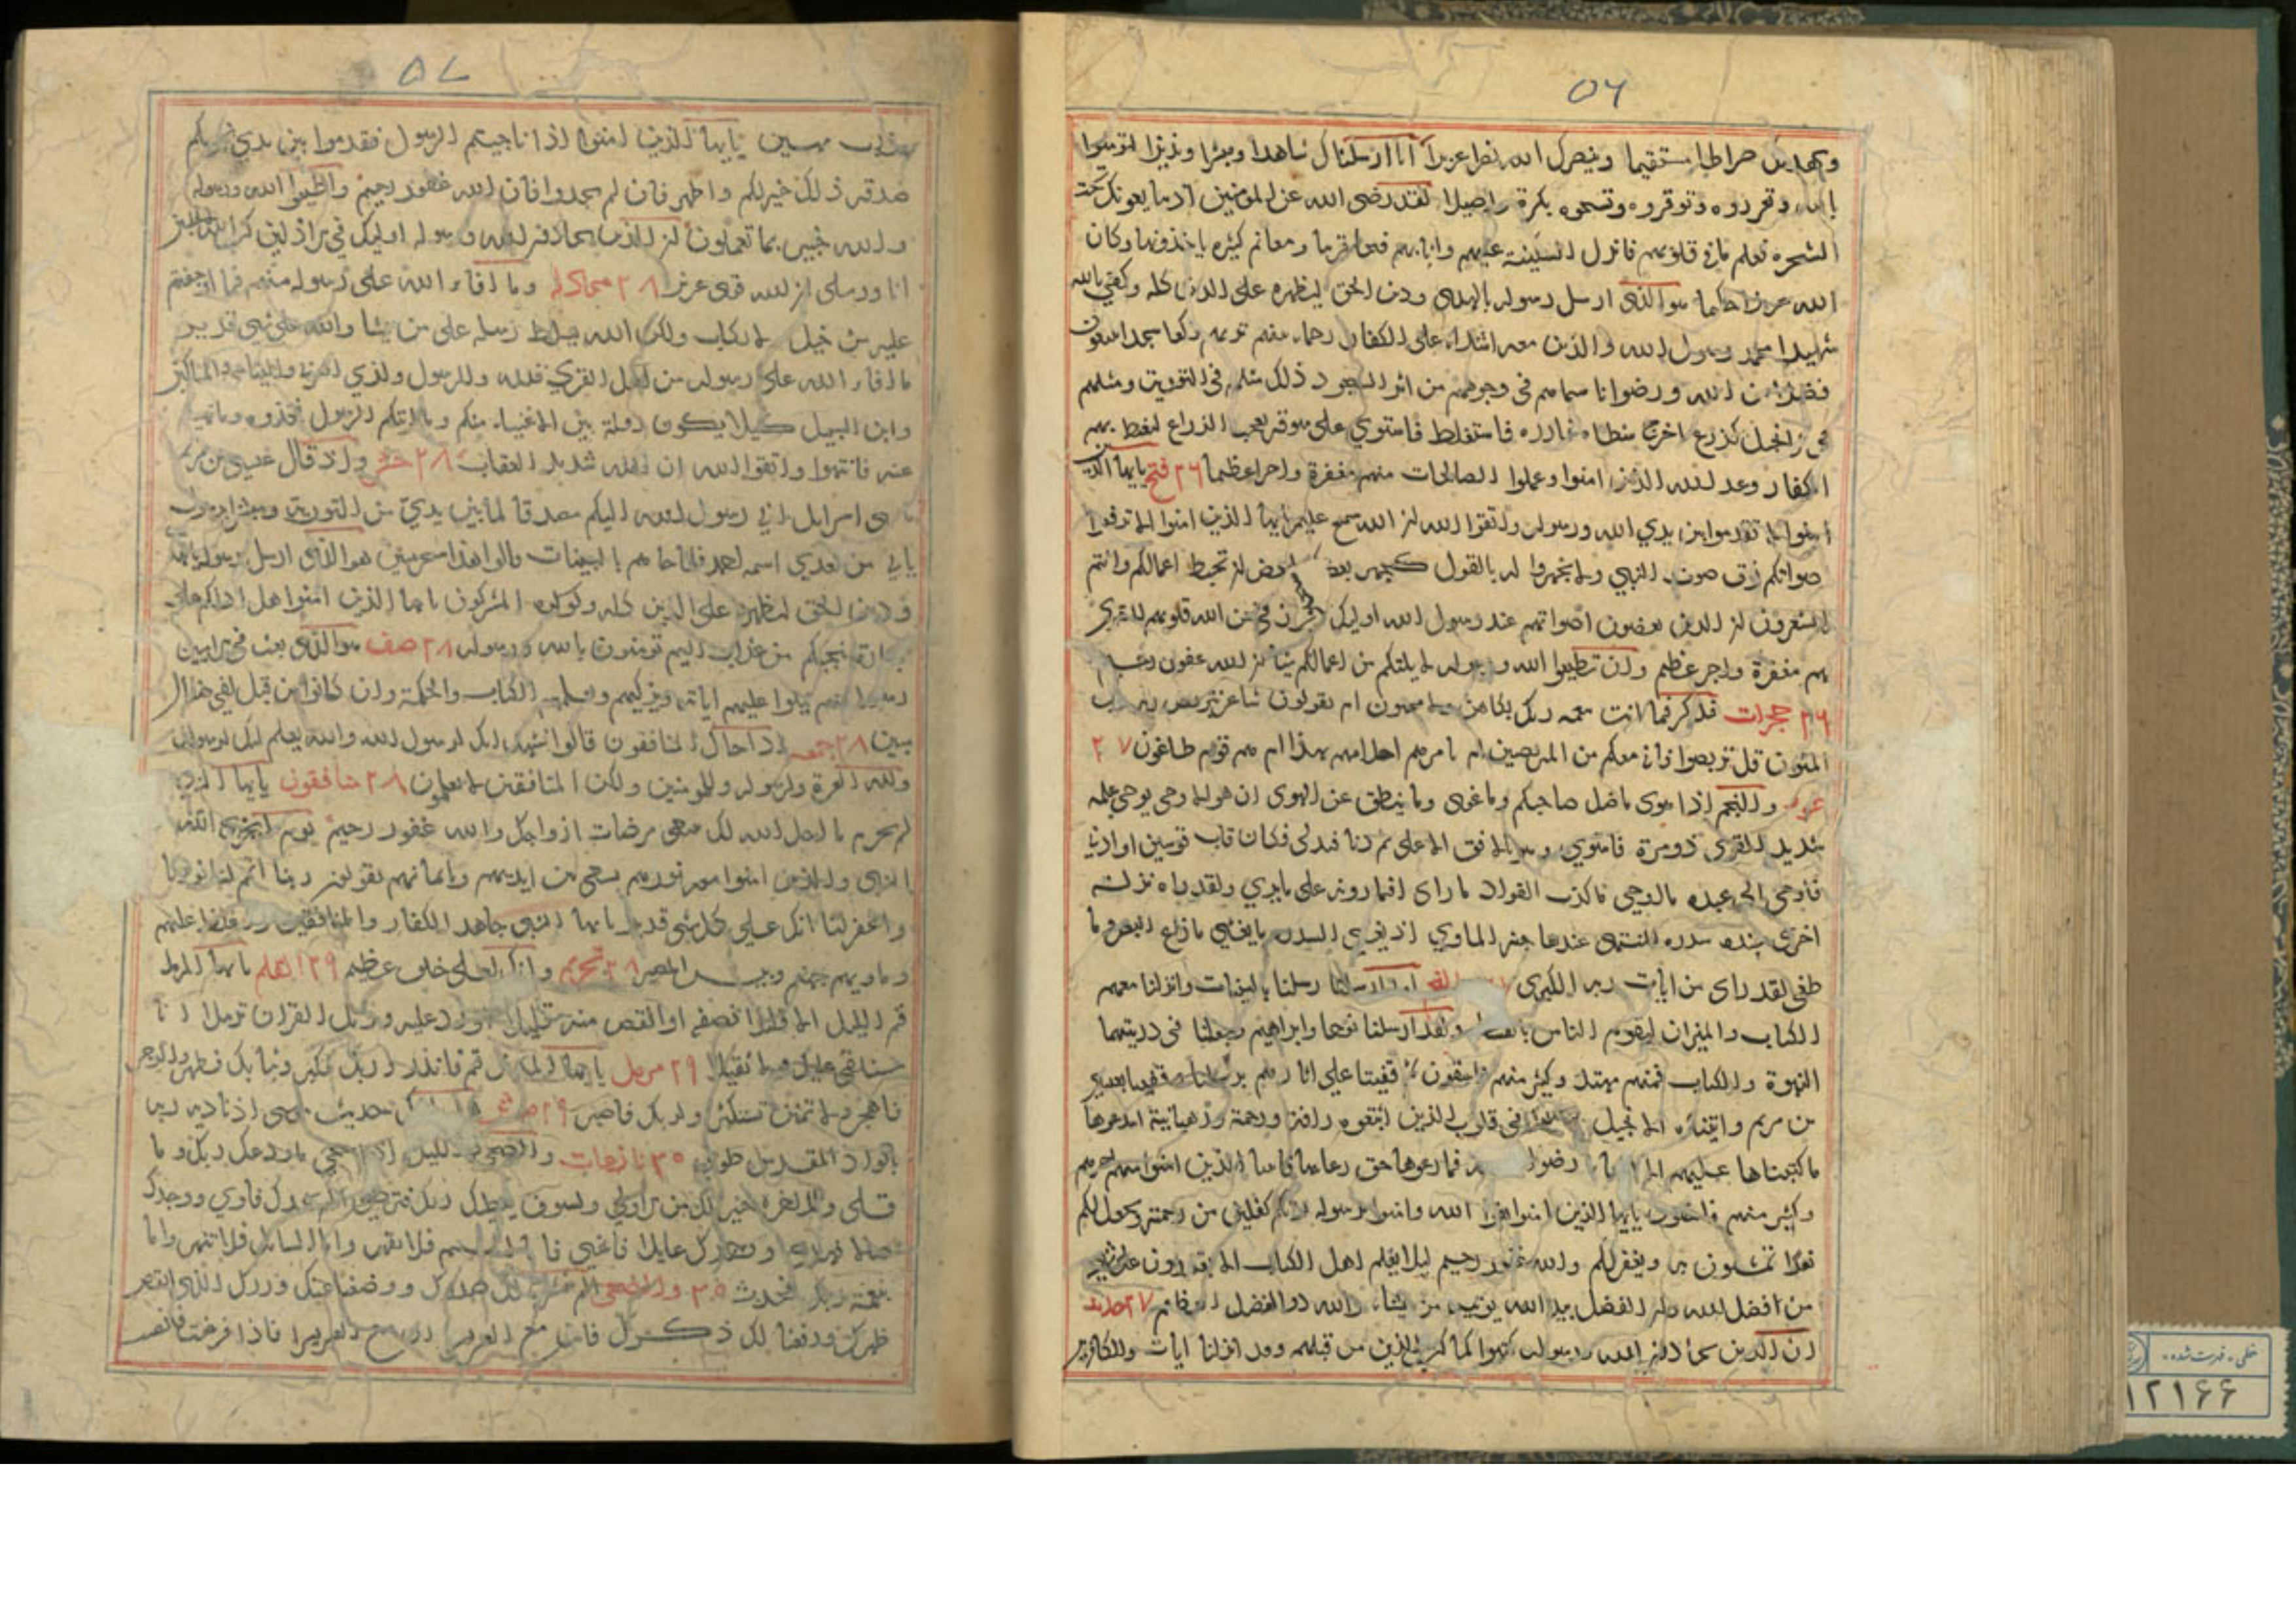 ٥٦
ويهديك صراطا مستقيما وينصرك الله نصرا عزيزا انا ارسلناك شاهدا ومبشرا ونذيرا لتؤمنوا
بالله وتعزروه وتوقروه وتسبحوه بكرة واصيلا لقد رضى الله عن المؤمنين اذ يبايعونك تحت
الشجرة فعلم ما في قلوبهم فانزل السكينة عليهم واثابهم فتحا قريبا ومغانم كثيرة ياخذونها وكان
الله عزيزا حكيما هو الذى ارسل رسوله بالهدى ودين الحق ليظهره على الدين كله وكفى بالله
شهيدا محمد رسول الله والذين معه اشداء على الكفار رحماء بينهم تريهم ركعا سجدا يبتغون
فضلا من الله ورضوانا سيماهم فى وجوههم من اثر السجود ذلك مثلهم فى التورية ومثلهم
فى الانجيل كزرع اخرج شطاه فازره فاستغلظ فاستوي على سوقه يعجب الزراع ليغيظ بهم
الكفار وعد الله الذين امنوا وعملوا الصالحات منهم مغفرة واجرا عظيما ٢٦ فتح يايها الذين
امنوا لا تقدموا بين يدي الله ورسوله واتقوا الله ان الله سميع عليم يايها الذين امنوا لا ترفعوا
اصواتكم فوق صوت النبي ولا تجهروا له بالقول كجهر بعضكم لبعض ان تحبط اعمالكم وانتم
لا تشعرون ان الذين يغضون اصواتهم عند رسول الله اوليك الذين امتحن الله قلوبهم للتقوى
لهم مغفرة واجر عظيم وان تطيعوا الله ورسوله لا يلتكم من اعمالكم شيئا ان الله غفور رحيم
٢٦ حجرات فذكر فما انت بنعمة ربك بكاهن ولا مجنون ام يقولون شاعر نتربص به ريب
المنون قل تربصوا فاني معكم من المتربصين ام تامرهم احلامهم بهذا ام هم قوم طاغون ٢٧
والنجم اذا هوى ما ضل صاحبكم وما غوى وما ينطق عن الهوى ان هو الا وحى يوحى علمه
شديد القوى ذو مرة فاستوي وهو بالافق الاعلى ثم دنا فتدلى فكان قاب قوسين او ادنى
فاوحى الى عبده ما اوحى ما كذب الفواد ما راى افتمارونه على ما يري ولقد راه نزلة
اخرى عند سدرة المنتهى عندها جنة الماوي اذ يغشى السدرة ما يغشى ما زاغ البصر وما
طغى لقد راى من ايات ربه الكبرى لقد ارسلنا رسلنا بالبينات وانزلنا معهم
الكتاب والميزان ليقوم الناس بالقسط ولقد ارسلنا نوحا وابراهيم وجعلنا فى ذريتهما
النبوة والكتاب فمنهم مهتد وكثير منهم فاسقون ثم قفينا على اثارهم برسلنا وقفينا بعيسى
بن مريم واتيناه الانجيل وجعلنا فى قلوب الذين اتبعوه رافة ورحمة ورهبانية ابتدعوها
ما كتبناها عليهم الا ابتغاء رضوان الله فما رعوها حق رعايتها فاتينا الذين امنوا منهم اجرهم
وكثير منهم فاسقون يايها الذين امنوا اتقوا الله وامنوا برسوله يؤتكم كفلين من رحمته ويجعل لكم
نورا تمشون به ويغفر لكم والله غفور رحيم ليلا يعلم اهل الكتاب الا يقدرون على شيء
من افضل الله وان الفضل بيد الله يوتيه من يشاء والله ذو الفضل العظيم ٢٧ حديد
ان الذين يحادون الله ورسوله كبتوا كما كبت الذين من قبلهم وقد انزلنا ايات وللكافرين
٥٧
عذاب مهين يايها الذين امنوا اذا ناجيتم الرسول فقدموا بين يدي نجويكم
صدقة ذلك خير لكم واطهر فان لم تجدوا فان الله غفور رحيم واطيعوا الله ورسوله
والله خبير بما تعملون ان الذين يحادون الله ورسوله اوليك في الاذلين كتب الله لاغلبن
انا ورسلى ان الله قوى عزيز ٢٨ مجادله وما افاء الله على رسوله منهم فما اوجفتم
عليه من خيل ولا ركاب ولكن الله يسلط رسله على من يشا والله على كل شى قدير
ما افاء الله على رسوله من اهل القرى فلله وللرسول ولذي القربى واليتامى والمساكين
وابن السبيل كيلا يكون دولة بين الاغنياء منكم وما اتيكم الرسول فخذوه وما نهيكم
عنه فانتهوا واتقوا الله ان الله شديد العقاب ٢٨ حشر واذ قال عيسى بن مريم
يا بنى اسرايل انى رسول الله اليكم مصدقا لما بين يدي من التورية ومبشرا برسول
ياتي من بعدي اسمه احمد فلما جاءهم بالبينات قالوا هذا سحر مبين هو الذى ارسل رسوله بالهدى
ودين الحق ليظهره على الدين كله ولو كره المشركون يايها الذين امنوا هل ادلكم على
تجارة تنجيكم من عذاب اليم تؤمنون بالله ورسوله ٢٨ صف هو الذى بعث فى الاميين
رسولا منهم يتلوا عليهم اياته ويزكيهم ويعلمهم الكتاب والحكمة وان كانوا من قبل لفى ضلال
مبين ٢٨ جمعه اذا جاءك المنافقون قالوا نشهد انك لرسول الله والله يعلم انك لرسوله
ولله العزة ولرسوله وللمؤمنين ولكن المنافقين لا يعلمون ٢٨ منافقون يايها النبى
لم تحرم ما احل الله لك تبتغى مرضات ازواجك والله غفور رحيم يوم لا يخزى الله
النبى والذين امنوا معه نورهم يسعى بين ايديهم وبايمانهم يقولون ربنا اتمم لنا نورنا
واغفر لنا انك على كل شى قدير يايها النبى جاهد الكفار والمنافقين واغلظ عليهم
وماويهم جهنم وبئس المصير ٢٨ تحريم وانك لعلى خلق عظيم ٢٩ القلم يايها المزمل
قم الليل الا قليلا نصفه او انقص منه قليلا او زد عليه ورتل القران ترتيلا انا
سنلقى عليك قولا ثقيلا ٢٩ مزمل يايها المدثر قم فانذر وربك فكبر وثيابك فطهر والرجز
فاهجر ولا تمنن تستكثر ولربك فاصبر ٢٩ مدثر حديث موسى اذ ناديه ربه
بالواد المقدس طوى ٣٠ نازعات والضحى والليل اذا سجى ما ودعك ربك وما
قلى وللاخرة خير لك من الاولى ولسوف يعطيك ربك فترضى الم يجدك فاوي ووجدك
ضالا فهدى ووجدك عايلا فاغنى فاما اليتيم فلا تقهر واما السايل فلا تنهر واما
بنعمة ربك فحدث ٣٠ والضحى الم نشرح لك صدرك ووضعنا عنك وزرك الذى انقض
ظهرك ورفعنا لك ذكرك فان مع العسر يسرا ان مع العسر يسرا فاذا فرغت فانصب
خطى - فهرست شده
١٢١٦٦